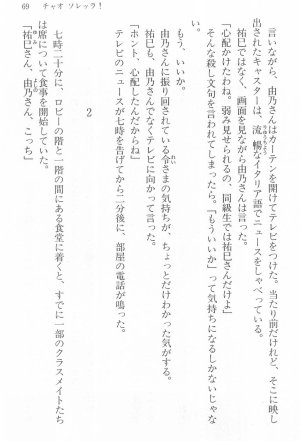 69　チャオ ソレッラ！
言いながら、由乃さんはカーテンを開けてテレビをつけた。当たり前だけれど、そこに映し
出されたキャスターは、流暢なイタリア語でニュースをしゃべっている。
「心配かけたわね。弱み見せられるの、同級生では祐巳さんだけよ」
祐巳ではなく、画面を見ながら由乃さんは言った。
そんな殺し文句を言われてしまったら。「もういいか」って気持ちになるしかないじゃな
いか。
もう、いいか。
由乃さんに振り回されている令さまの気持ちが、ちょっとだけわかった気がする。
「ホント、心配したんだからね」
祐巳も、由乃さんでなくテレビに向かって言った。
テレビのニュースが七時を告げてから二分後に、部屋の電話が鳴った。
2
七時三十分に、ロビーの階と一階の間にある食堂に着くと、すでに一部のクラスメイトたち
は席について食事を開始していた。
「祐巳さん、由乃さん、こっち」